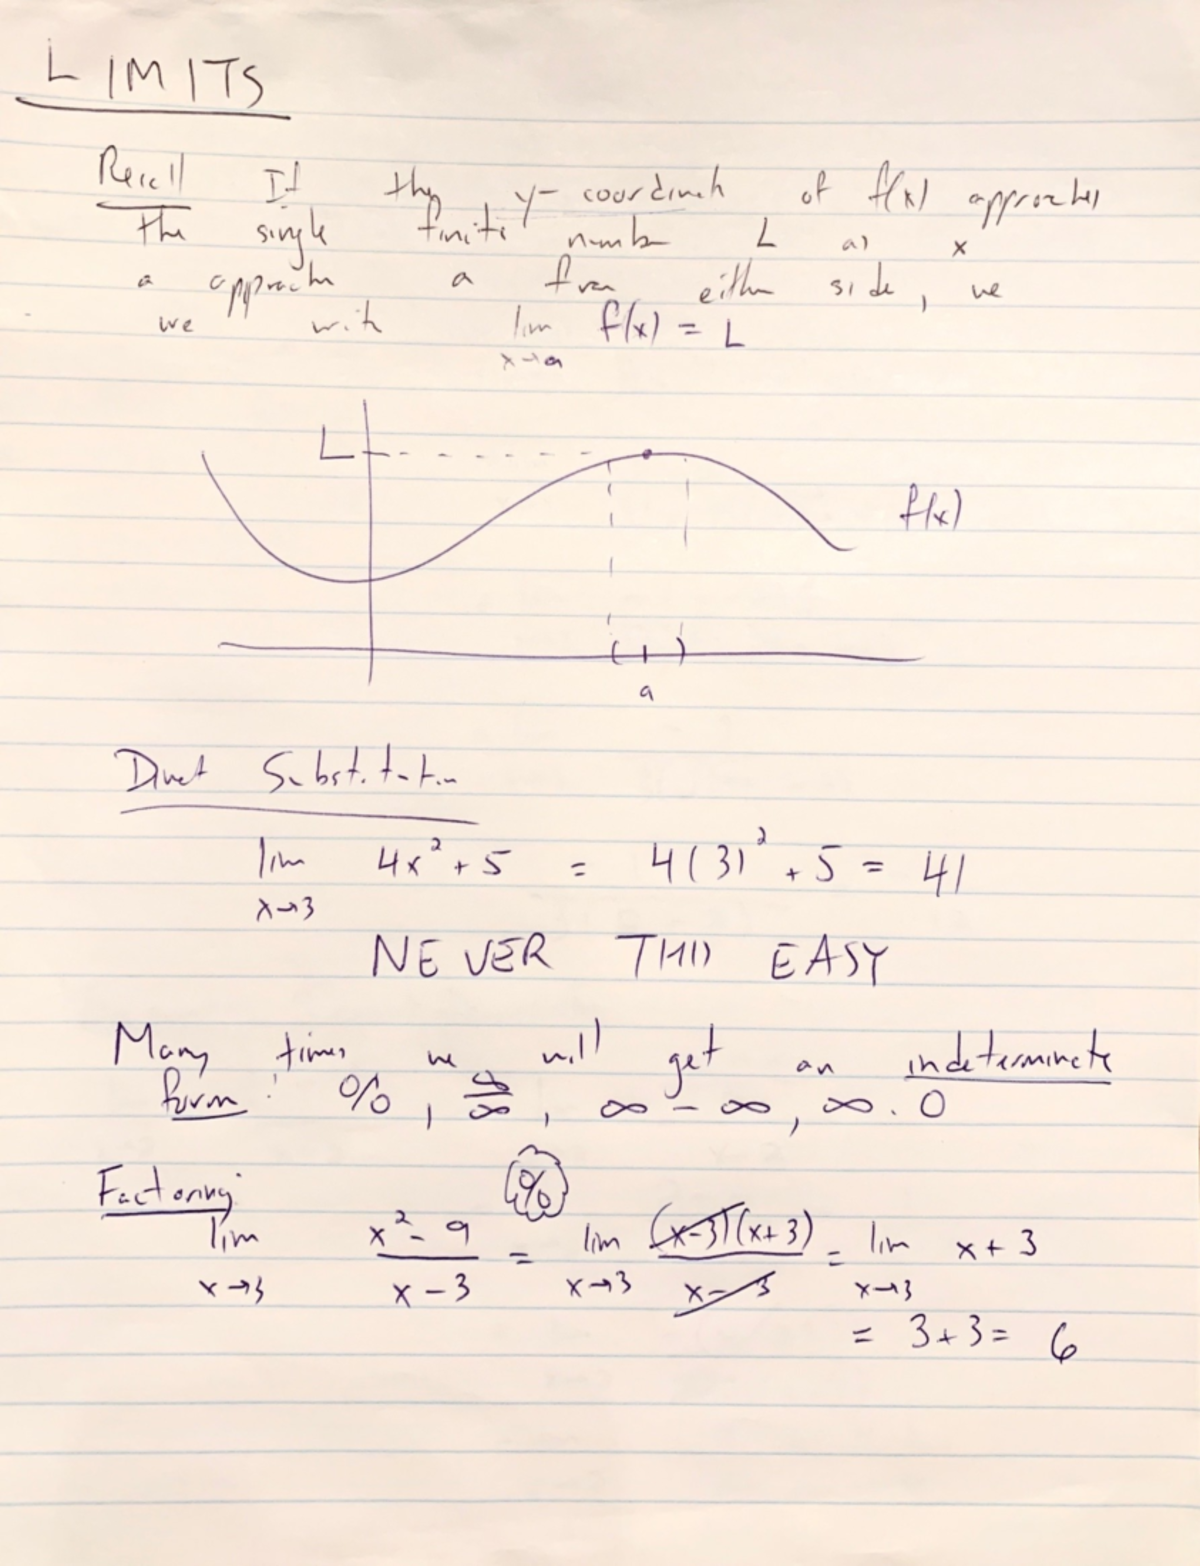 LIMITS
Recall If the y-coordinate of f(x) approaches
the single finite number L as x
a approaches a from either side, we
we write lim f(x) = L
x→a
L
f(x)
( | )
a
Direct Substitution
lim 4x² + 5 = 4(3)² + 5 = 41
x→3
NEVER THIS EASY
Many times we will get an indeterminate
form: 0/0, ∞/∞, ∞ - ∞, ∞ . 0
Factoring:
0/0
lim x² - 9 / x - 3 = lim (x-3)(x+3) / x - 3 = lim x + 3
x→3 x→3 x→3
= 3 + 3 = 6